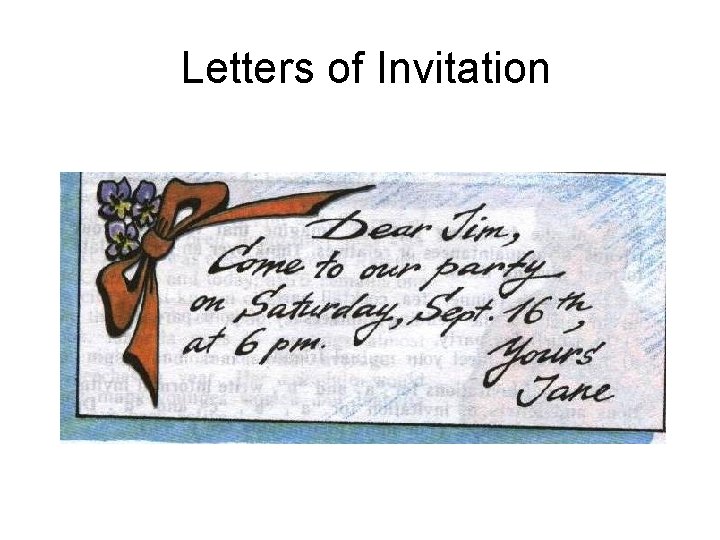 Letters of Invitation
Dear Jim,
Come to our party
on Saturday, Sept. 16th,
at 6 pm.
Yours
Jane